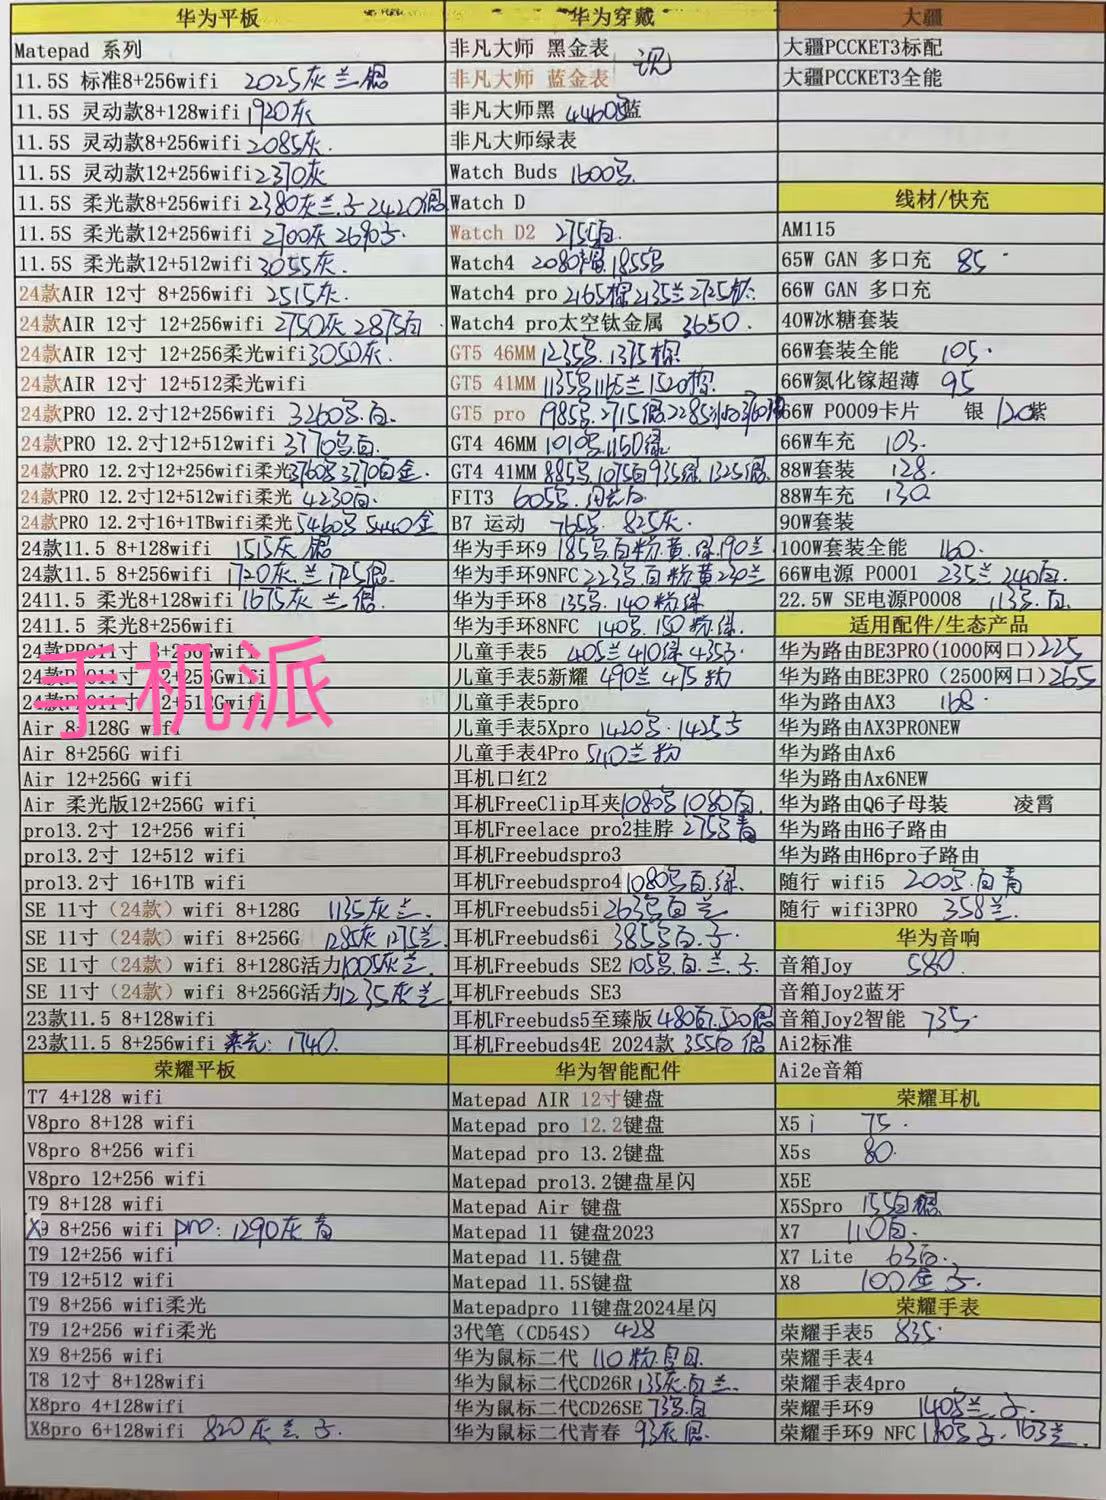 华为平板
Matepad 系列
11.5S 标准8+256wifi 2025灰 兰 银
11.5S 灵动款8+128wifi 1920灰
11.5S 灵动款8+256wifi 2085灰.
11.5S 灵动款12+256wifi 2370灰
11.5S 柔光款8+256wifi 2380灰兰.子 2420银
11.5S 柔光款12+256wifi 2700灰 2690子.
11.5S 柔光款12+512wifi 3055灰.
24款AIR 12寸 8+256wifi 2515灰.
24款AIR 12寸 12+256wifi 2750灰 2875白
24款AIR 12寸 12+256柔光wifi 3050灰.
24款AIR 12寸 12+512柔光wifi
24款PRO 12.2寸12+256wifi 3260黑.白.
24款PRO 12.2寸12+512wifi 3770黑白.
24款PRO 12.2寸12+256wifi柔光3760黑3770白金.
24款PRO 12.2寸12+512wifi柔光 4230白.
24款PRO 12.2寸16+1TBwifi柔光 5460黑 5440金
24款11.5 8+128wifi 1515灰 银
24款11.5 8+256wifi 1720灰.兰 1725银.
2411.5 柔光8+128wifi 1675灰 兰 银.
2411.5 柔光8+256wifi
24款PRO11寸 8+256Gwifi
24款PRO11寸 12+256Gwifi
24款PRO11寸 12+512Gwifi
手机派
Air 8+128G wifi
Air 8+256G wifi
Air 12+256G wifi
Air 柔光版12+256G wifi
pro13.2寸 12+256 wifi
pro13.2寸 12+512 wifi
pro13.2寸 16+1TB wifi
SE 11寸（24款）wifi 8+128G 1135灰 兰.
SE 11寸（24款）wifi 8+256G 1285灰 1275兰.
SE 11寸（24款）wifi 8+128G活力1005灰兰.
SE 11寸（24款）wifi 8+256G活力1235灰兰
23款11.5 8+128wifi
23款11.5 8+256wifi 柔光: 1740.
荣耀平板
T7 4+128 wifi
V8pro 8+128 wifi
V8pro 8+256 wifi
V8pro 12+256 wifi
T9 8+128 wifi
X9 8+256 wifi pro: 1290灰 青
T9 12+256 wifi
T9 12+512 wifi
T9 8+256 wifi柔光
T9 12+256 wifi柔光
X9 8+256 wifi
T8 12寸 8+128wifi
X8pro 4+128wifi
X8pro 6+128wifi 820灰 兰. 子.
华为穿戴
非凡大师 黑金表
非凡大师 蓝金表
非凡大师黑 4460 蓝
非凡大师绿表
Watch Buds 1600黑.
Watch D
Watch D2 2755白.
Watch4 2080棕.1855黑
Watch4 pro 2165棕2135兰2725钛.
Watch4 pro太空钛金属 3650.
GT5 46MM 1235黑.1375棕.
GT5 41MM 1135黑1165兰1520棕.
GT5 pro 1985黑.2715银.2285
GT4 46MM 1010黑.1150绿.
GT4 41MM 885黑.1075白935绿.1325银.
FIT3 605黑.
B7 运动 765黑. 825灰.
华为手环9 185黑白粉.黄.绿.190兰
华为手环9NFC 223黑.白 粉黄230兰
华为手环8 135黑.140粉绿
华为手环8NFC 140黑.150粉.绿.
儿童手表5 405兰410绿 435子.
儿童手表5新耀 490兰 475粉
儿童手表5pro
儿童手表5Xpro 1420黑.1425子
儿童手表4Pro 540兰 粉
耳机口红2
耳机FreeClip耳夹1080黑1080白.
耳机Freelace pro2挂脖 275黑青
耳机Freebudspro3
耳机Freebudspro4 1080黑白.绿.
耳机Freebuds5i 263黑白 兰
耳机Freebuds6i 385黑白.子.
耳机Freebuds SE2 105黑.白.兰.子.
耳机Freebuds SE3
耳机Freebuds5至臻版 480白.520银
耳机Freebuds4E 2024款 355白 银
华为智能配件
Matepad AIR 12寸键盘
Matepad pro 12.2键盘
Matepad pro 13.2键盘
Matepad pro13.2键盘星闪
Matepad Air 键盘
Matepad 11 键盘2023
Matepad 11.5键盘
Matepad 11.5S键盘
Matepadpro 11键盘2024星闪
3代笔（CD54S） 428
华为鼠标二代 110粉.黑白.
华为鼠标二代CD26R 135灰.白 兰.
华为鼠标二代CD26SE 73黑.白
华为鼠标二代青春 93灰 银.
大疆
大疆PCCKET3标配
大疆PCCKET3全能
线材/快充
AM115
65W GAN 多口充 85.
66W GAN 多口充
40W冰糖套装
66W套装全能 105.
66W氮化镓超薄 95
66W P0009卡片 银 120紫
66W车充 103.
88W套装 128.
88W车充 130
90W套装
100W套装全能 160.
66W电源 P0001 235兰 240白.
22.5W SE电源P0008 113黑.白.
适用配件/生态产品
华为路由BE3PRO(1000网口)225
华为路由BE3PRO（2500网口)265
华为路由AX3 168.
华为路由AX3PRONEW
华为路由Ax6
华为路由Ax6NEW
华为路由Q6子母装 凌霄
华为路由H6子路由
华为路由H6pro子路由
随行 wifi5 200黑.白 青
随行 wifi3PRO 358兰.
华为音响
音箱Joy 580.
音箱Joy2蓝牙
音箱Joy2智能 735.
Ai2标准
Ai2e音箱
荣耀耳机
X5 i 75.
X5s 80.
X5E
X5Spro 155白银
X7 110白.
X7 Lite 63白.
X8 100金 子.
荣耀手表
荣耀手表5 835.
荣耀手表4
荣耀手表4pro
荣耀手环9 140黑兰.子.
荣耀手环9 NFC 180黑子.163兰.